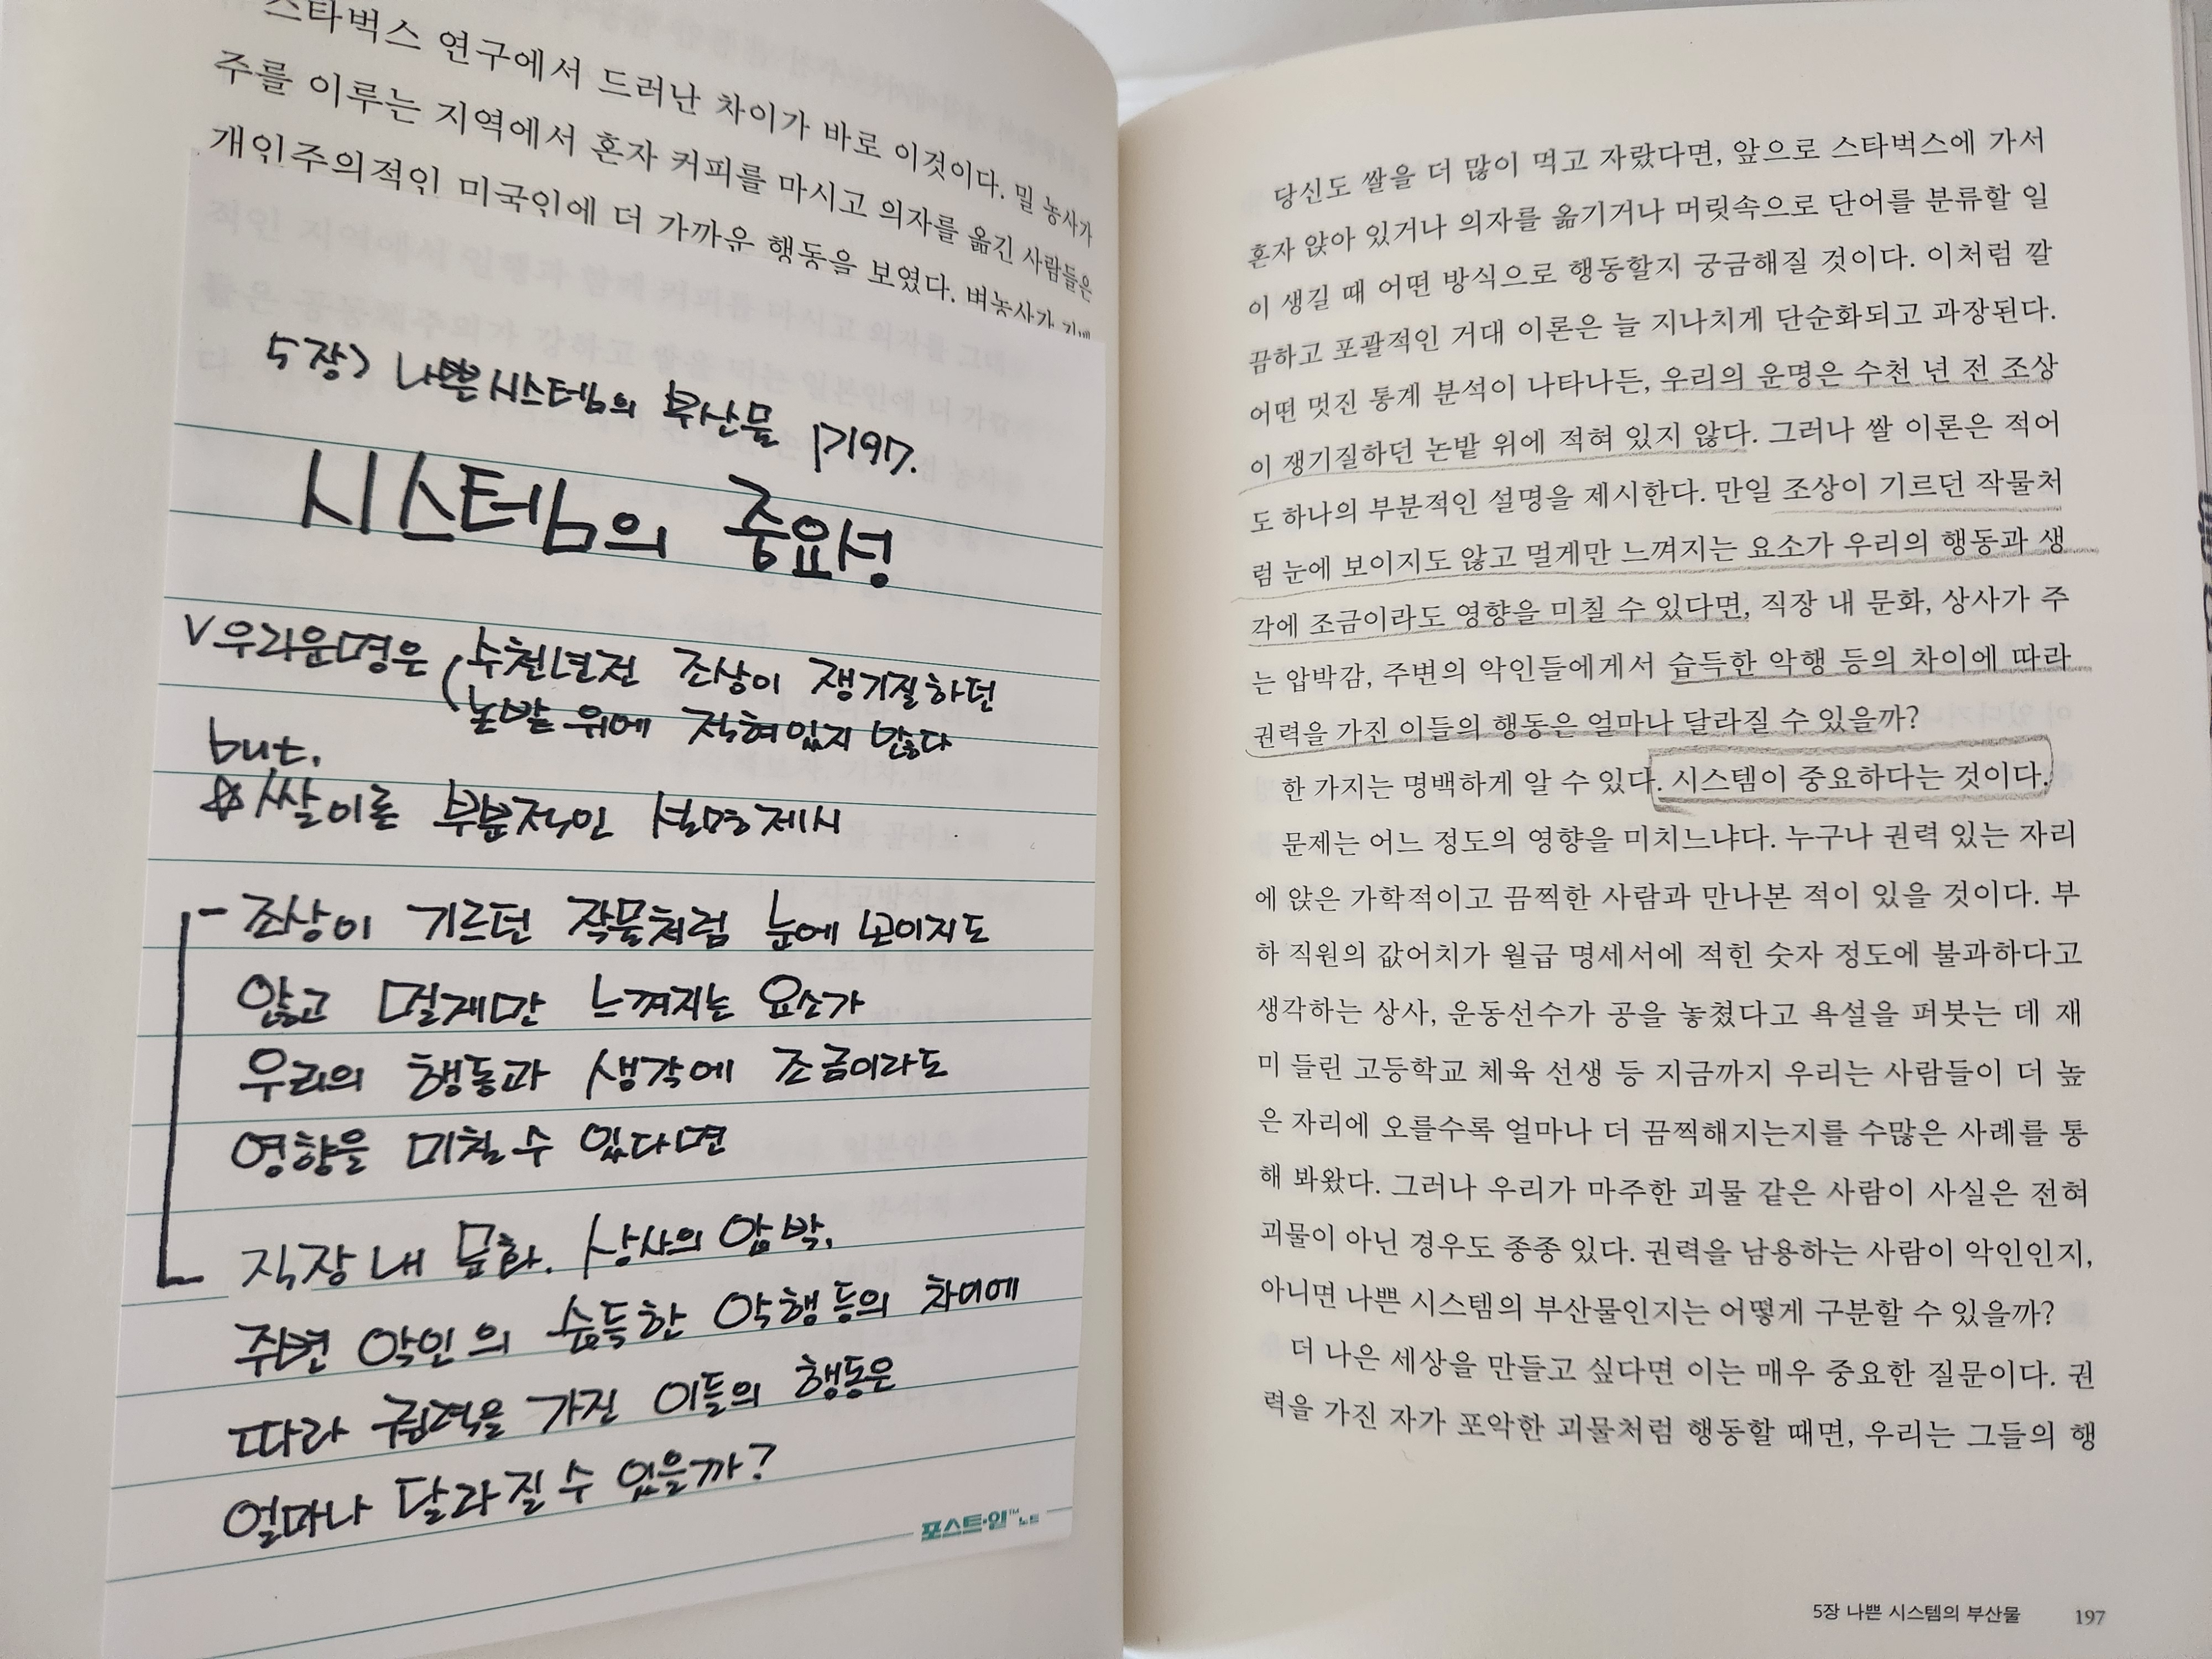 스타벅스 연구에서 드러난 차이가 바로 이것이다. 밀 농사가
주를 이루는 지역에서 혼자 커피를 마시고 의자를 옮긴 사람들은
개인주의적인 미국인에 더 가까운 행동을 보였다. 벼농사가
5장> 나쁜시스템의 부산물 P197.
시스템의 중요성
V 우리운명은 (수천년전 조상이 쟁기질하던
논밭 위에 적혀있지 않다
but,
☆ 쌀이론 부분적인 설명제시
- 조상이 기르던 작물처럼 눈에 보이지도
않고 멀게만 느껴지는 요소가
우리의 행동과 생각에 조금이라도
영향을 미칠수 있다면
직장 내 문화. 상사의 압박,
주변 악인의 습득한 악행등의 차이에
따라 권력을 가진 이들의 행동은
얼마나 달라질수 있을까?
포스트·잇™ 노트
당신도 쌀을 더 많이 먹고 자랐다면, 앞으로 스타벅스에 가서
혼자 앉아 있거나 의자를 옮기거나 머릿속으로 단어를 분류할 일
이 생길 때 어떤 방식으로 행동할지 궁금해질 것이다. 이처럼 깔
끔하고 포괄적인 거대 이론은 늘 지나치게 단순화되고 과장된다.
어떤 멋진 통계 분석이 나타나든, 우리의 운명은 수천 년 전 조상
이 쟁기질하던 논밭 위에 적혀 있지 않다. 그러나 쌀 이론은 적어
도 하나의 부분적인 설명을 제시한다. 만일 조상이 기르던 작물처
럼 눈에 보이지도 않고 멀게만 느껴지는 요소가 우리의 행동과 생
각에 조금이라도 영향을 미칠 수 있다면, 직장 내 문화, 상사가 주
는 압박감, 주변의 악인들에게서 습득한 악행 등의 차이에 따라
권력을 가진 이들의 행동은 얼마나 달라질 수 있을까?
한 가지는 명백하게 알 수 있다. 시스템이 중요하다는 것이다.
문제는 어느 정도의 영향을 미치느냐다. 누구나 권력 있는 자리
에 앉은 가학적이고 끔찍한 사람과 만나본 적이 있을 것이다. 부
하 직원의 값어치가 월급 명세서에 적힌 숫자 정도에 불과하다고
생각하는 상사, 운동선수가 공을 놓쳤다고 욕설을 퍼붓는 데 재
미 들린 고등학교 체육 선생 등 지금까지 우리는 사람들이 더 높
은 자리에 오를수록 얼마나 더 끔찍해지는지를 수많은 사례를 통
해 봐왔다. 그러나 우리가 마주한 괴물 같은 사람이 사실은 전혀
괴물이 아닌 경우도 종종 있다. 권력을 남용하는 사람이 악인인지,
아니면 나쁜 시스템의 부산물인지는 어떻게 구분할 수 있을까?
더 나은 세상을 만들고 싶다면 이는 매우 중요한 질문이다. 권
력을 가진 자가 포악한 괴물처럼 행동할 때면, 우리는 그들의 행
5장 나쁜 시스템의 부산물 197